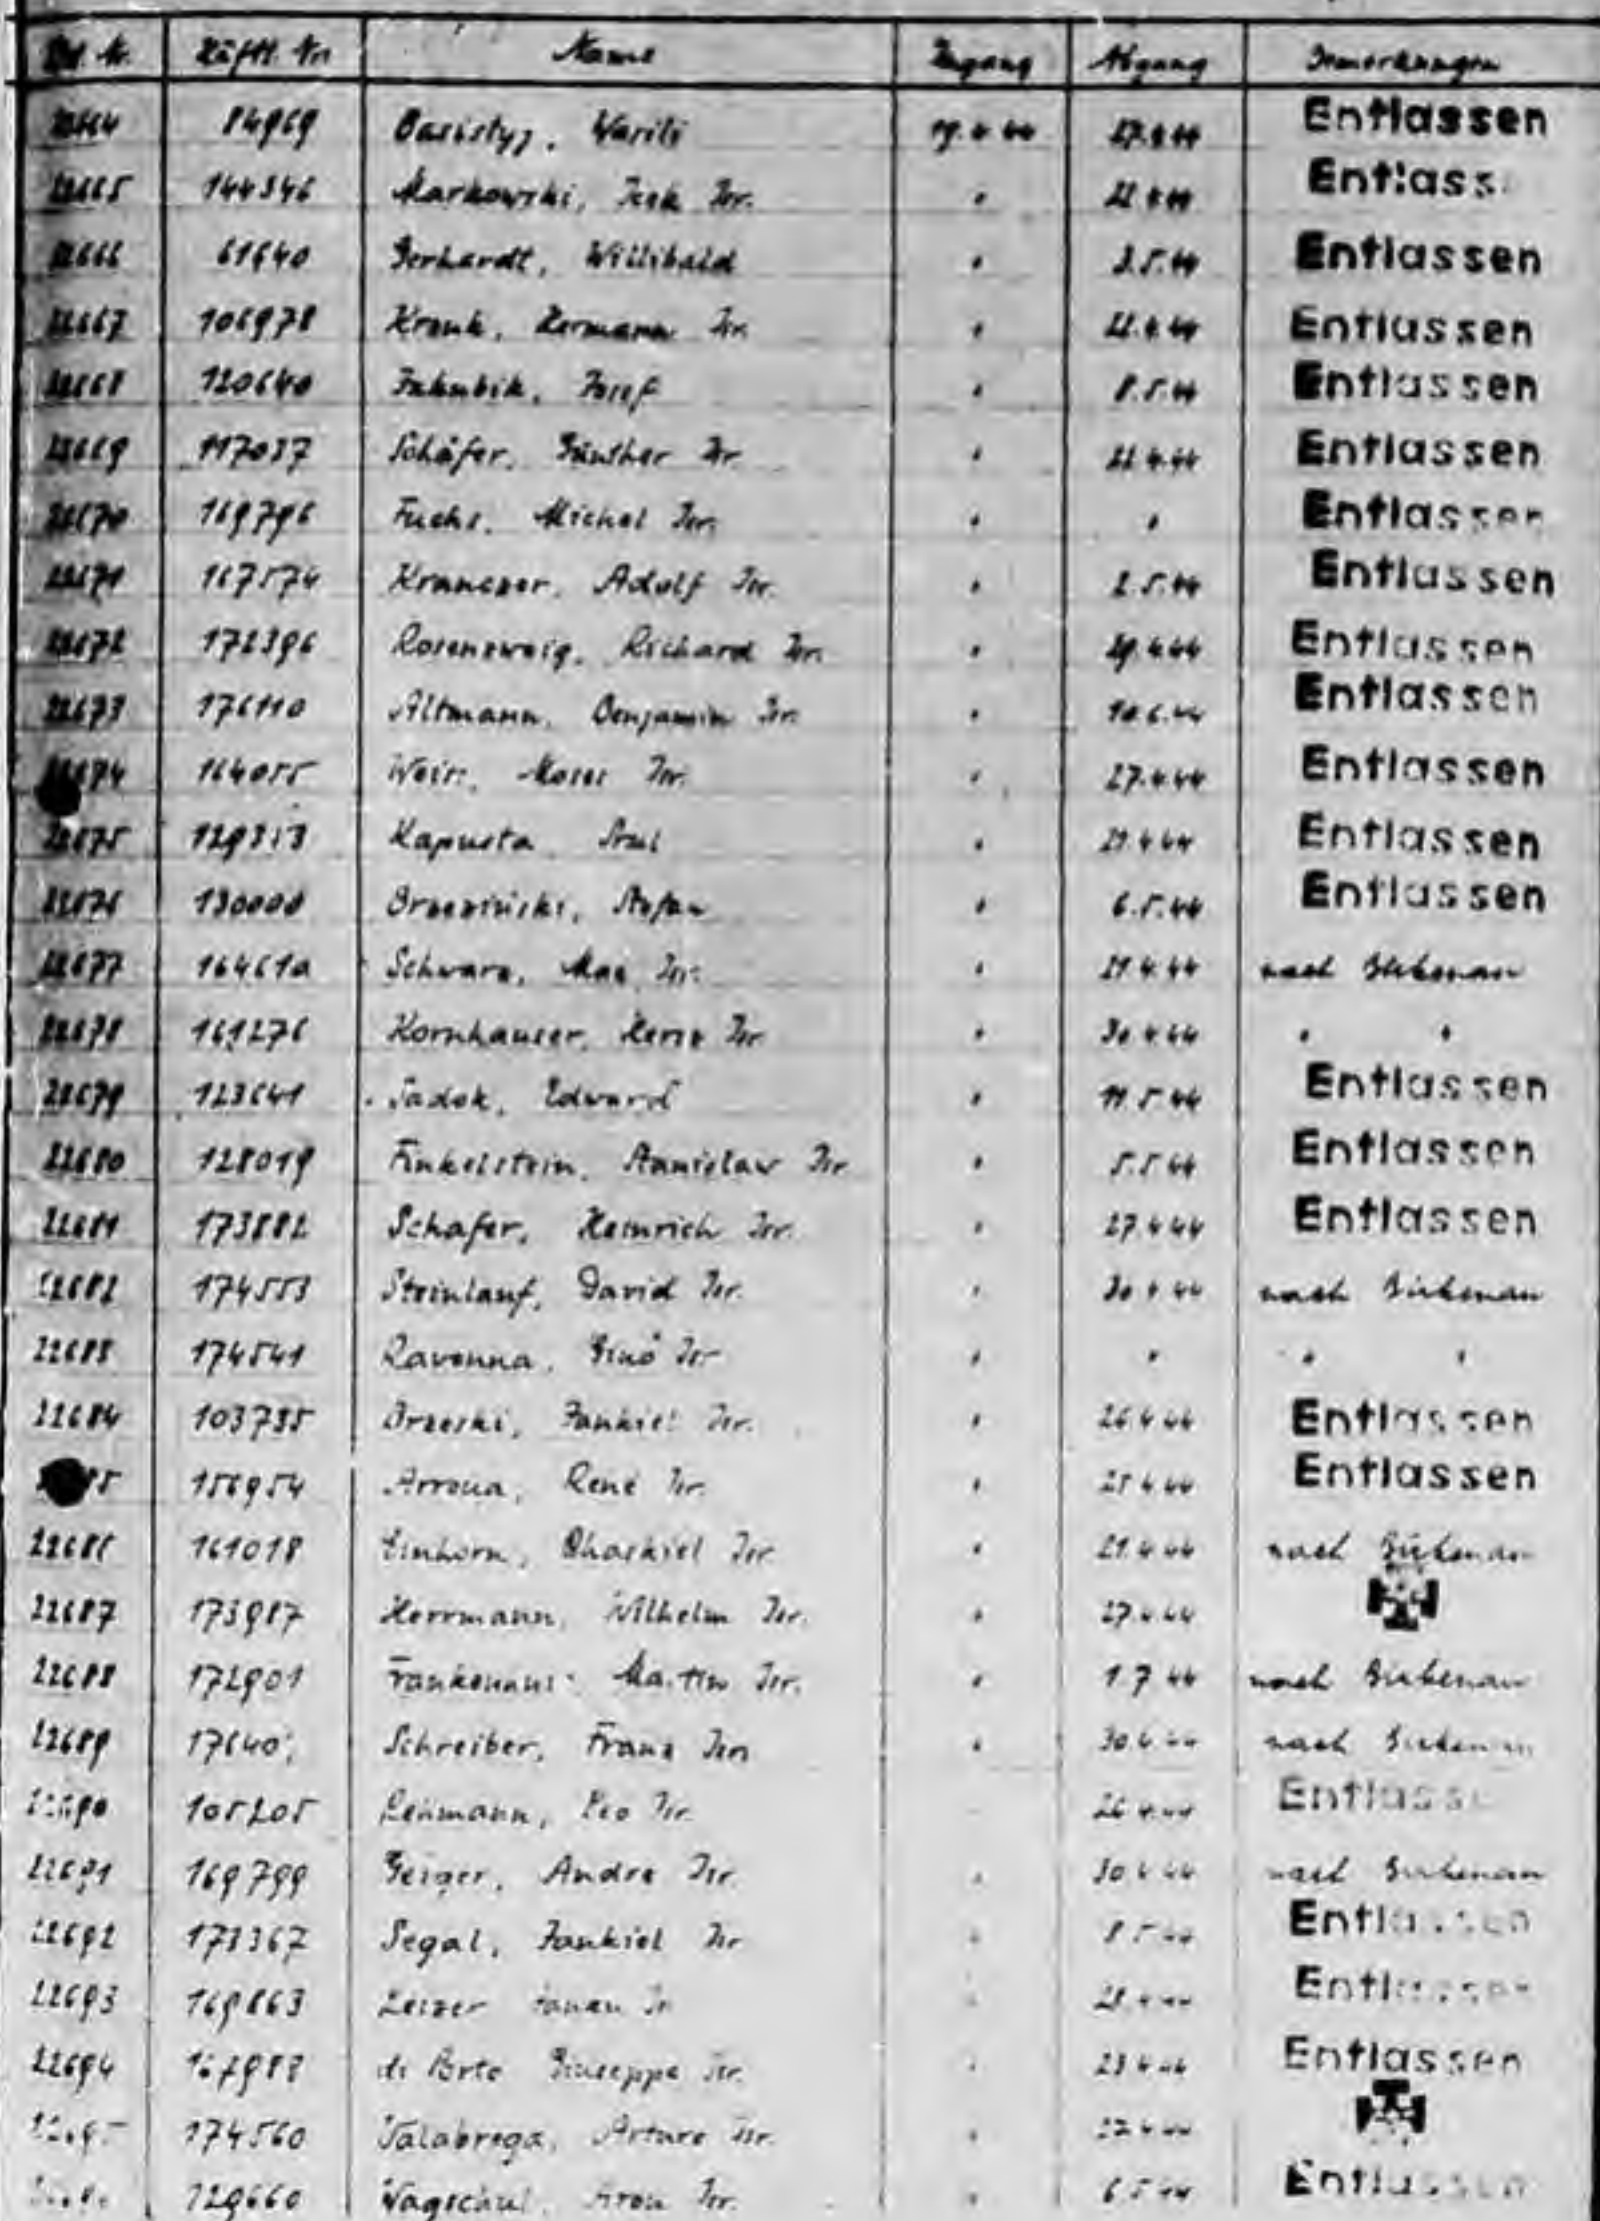 Häftl. Nr. Name Zugang Abgang Bemerkungen
22664 84969 Basistyj, Wasili 19.4.44 27.4.44 Entlassen
22665 144346 Markowski, Icek Isr. " 22.4.44 Entlass
22666 61640 Gerhardt, Willibald " 3.5.44 Entlassen
22667 106978 Kronk, Hermann Isr. " 22.4.44 Entlassen
22668 120640 Jakubik, Josef " 8.5.44 Entlassen
22669 117037 Schäfer, Günther Isr. " 22.4.44 Entlassen
22670 169796 Fuchs, Michel Isr. " " Entlassen
22671 167574 Kranczer, Adolf Isr. " 2.5.44 Entlassen
22672 172396 Rosenzweig, Richard Isr. " 29.4.44 Entlassen
22673 176110 Altmann, Benjamin Isr. " 10.6.44 Entlassen
22674 164055 Weiss, Moses Isr. " 27.4.44 Entlassen
22675 129313 Kapusta, Srul " 21.4.44 Entlassen
22676 130000 Brzeziński, Stefan " 6.5.44 Entlassen
22677 164610 Schwarz, Max Isr. " 21.4.44 nach Birkenau
22678 161276 Kornhauser, Hersz Isr. " 30.4.44 " "
22679 123641 Sadok, Edward " 11.5.44 Entlassen
22680 128019 Finkelstein, Stanislaw Isr. " 5.5.44 Entlassen
22681 173882 Schafer, Heinrich Isr. " 27.4.44 Entlassen
22682 174553 Steinlauf, David Isr. " 30.4.44 nach Birkenau
22683 174541 Ravenna, Gino Isr. " " " "
22684 103735 Brzeski, Jankiel Isr. " 26.4.44 Entlassen
85 156954 Arroua, René Isr. " 25.4.44 Entlassen
22686 161018 Einhorn, Chaskiel Isr. " 21.4.44 nach Birkenau
22687 173987 Herrmann, Wilhelm Isr. " 27.4.44
22688 172901 Martin Isr. " 1.7.44 nach Birkenau
22689 17640 Schreiber, Franz Isr. " 30.4.44 nach Birkenau
22690 105205 Lehmann, Leo Isr. 26.4.44 Entlass
22691 169799 Geiger, Andre Isr. " 30.4.44 nach Birkenau
22692 173367 Segal, Jankiel Isr. " 8.5.44 Entlassen
22693 169863 Leiser Isr. " 28.4.44 Entlassen
22694 167983 di Porto Giuseppe Isr. " 23.4.44 Entlassen
174560 Valabrega, Arturo Isr. " 22.4.44
129660 Wagschal, Aron Isr. " 6.5.44 Entlassen